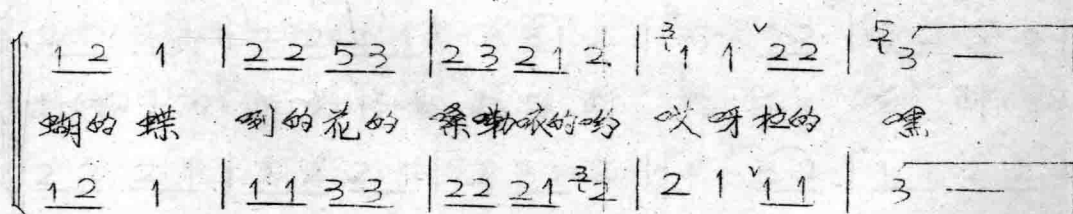 1 2 1 | 2 2 5 3 | 2 3 2 1 2 | 3 1 1 ∨ 2 2 | 5 3 —
蝴的 蝶 唎的花的 桑嘞依的哟 哎呀拉的 嘿
1 2 1 | 1 1 3 3 | 2 2 2 1 3 2 | 2 1 ∨ 1 1 | 3 —